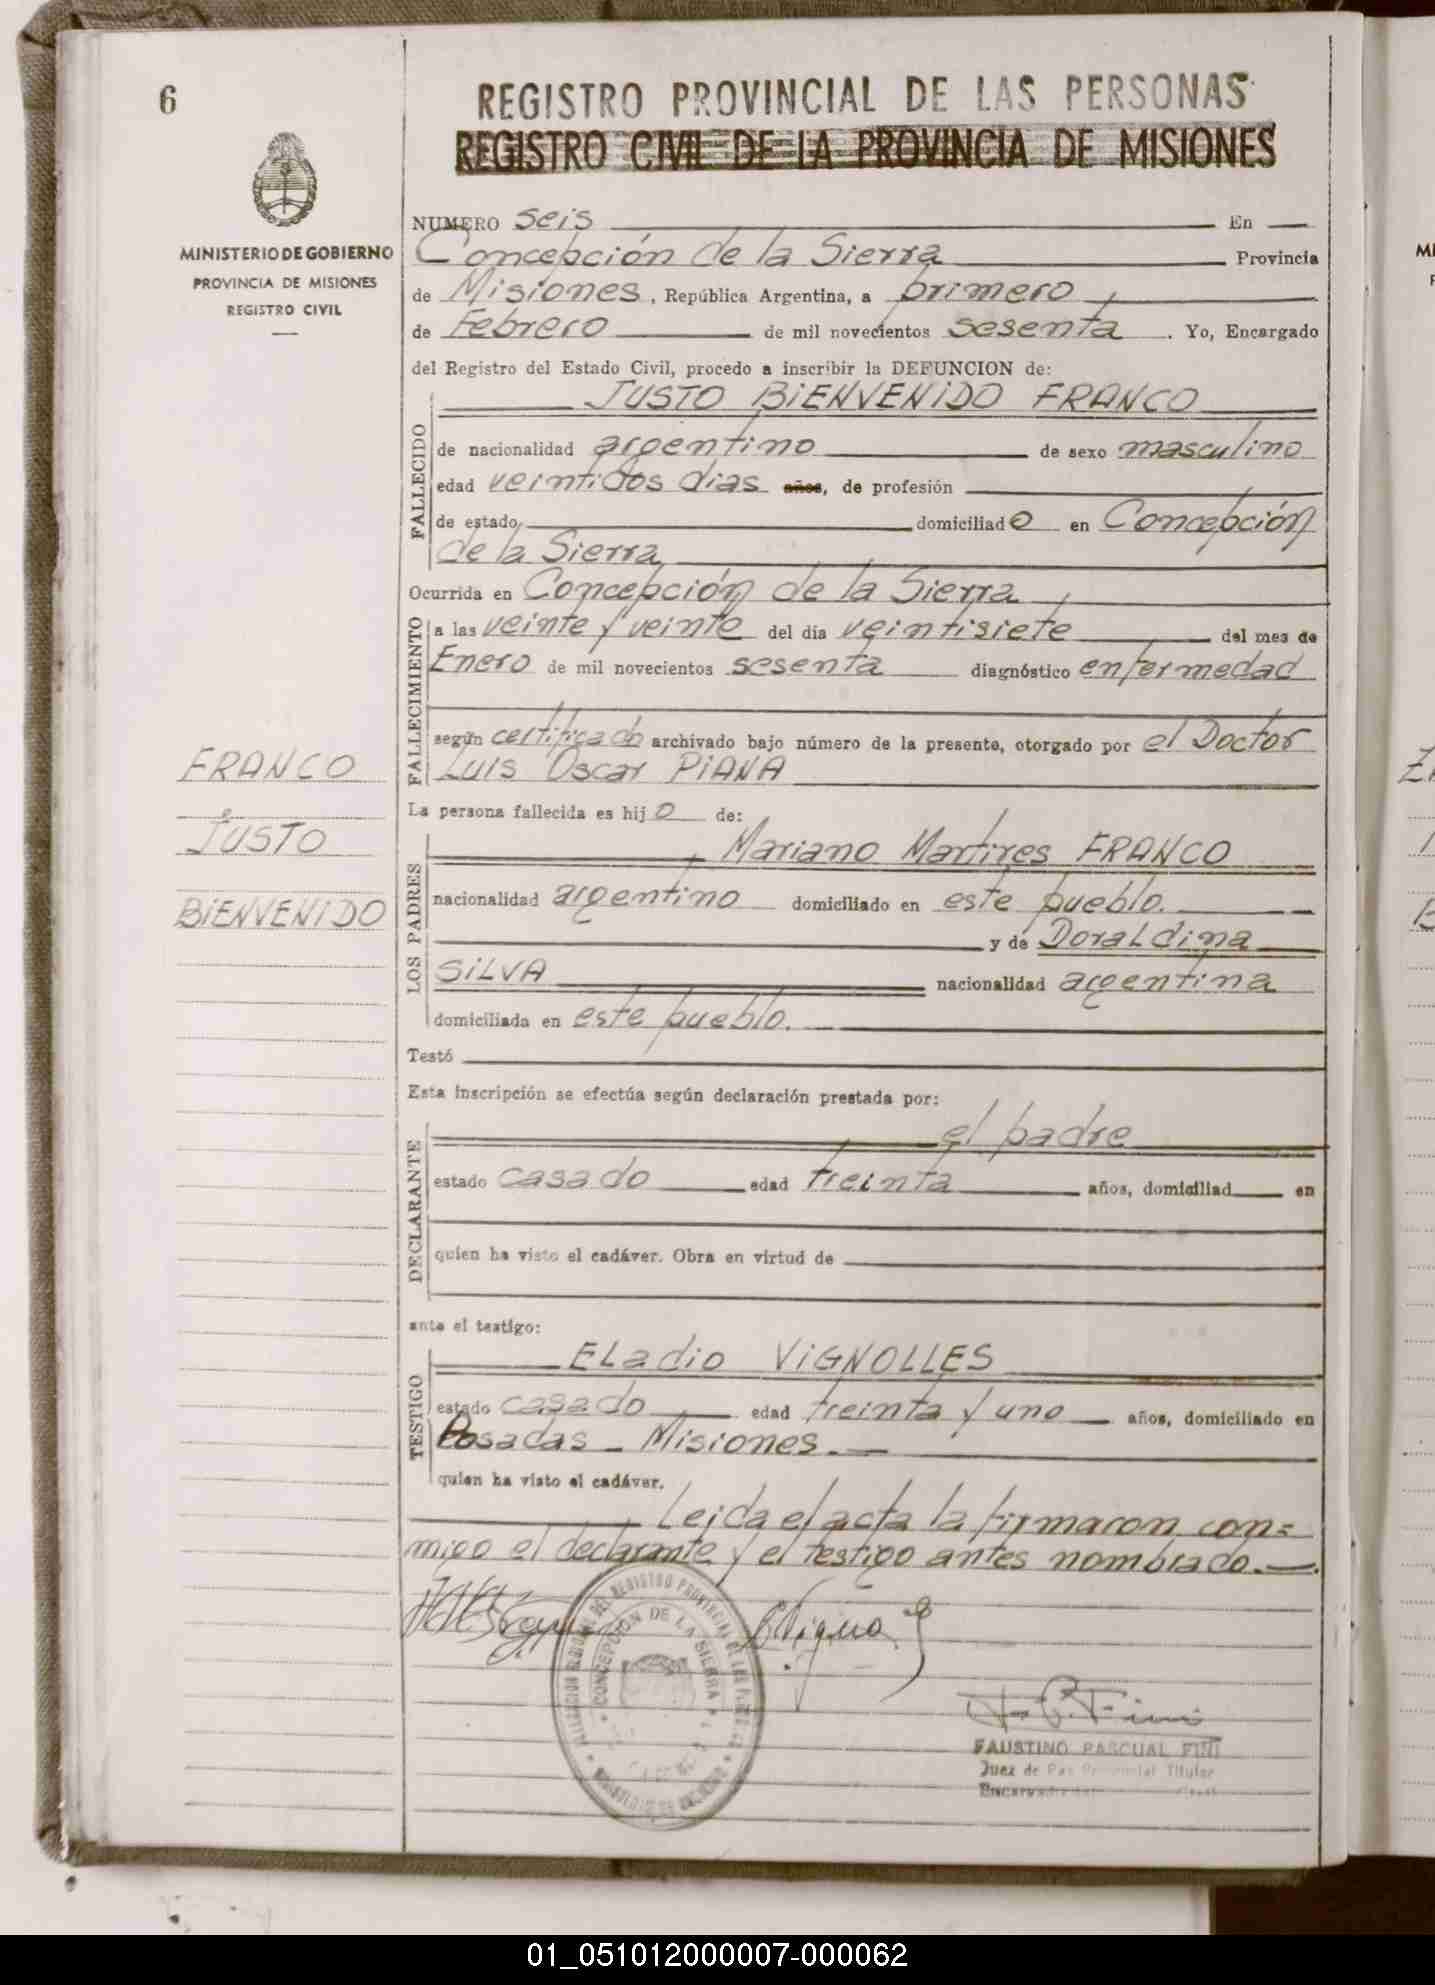 6
REGISTRO PROVINCIAL DE LAS PERSONAS
REGISTRO CIVIL DE LA PROVINCIA DE MISIONES
MINISTERIO DE GOBIERNO
PROVINCIA DE MISIONES
REGISTRO CIVIL
NUMERO seis En
Concepción de la Sierra Provincia
de Misiones, República Argentina, a primero
de Febrero de mil novecientos sesenta. Yo, Encargado
del Registro del Estado Civil, procedo a inscribir la DEFUNCION de:
JUSTO BIENVENIDO FRANCO
FALLECIDO
de nacionalidad argentino de sexo masculino
edad veintidos dias años, de profesión
de estado domiciliado en Concepción
de la Sierra
Ocurrida en Concepción de la Sierra
FALLECIMIENTO
a las veinte y veinte del día veintisiete del mes de
Enero de mil novecientos sesenta diagnóstico enfermedad
según certificado archivado bajo número de la presente, otorgado por el Doctor
Luis Oscar PIANA
FRANCO
JUSTO
BIENVENIDO
La persona fallecida es hijo de:
LOS PADRES
Mariano Martires FRANCO
nacionalidad argentino domiciliado en este pueblo.
y de Doraldina
SILVA nacionalidad argentina
domiciliada en este pueblo.
Testó
Esta inscripción se efectúa según declaración prestada por:
DECLARANTE
el padre
estado casado edad treinta años, domiciliad en
quien ha visto el cadáver. Obra en virtud de
ante el testigo:
TESTIGO
Eladio VIGNOLLES
estado casado edad treinta y uno años, domiciliado en
Posadas - Misiones.
quien ha visto el cadáver.
Leida el acta la firmaron con=
migo el declarante y el testigo antes nombrado.
CONCEPCIÓN DE LA SIERRA
FAUSTINO PASCUAL FINI
Juez de Paz Provincial Titular
01_051012000007-000062